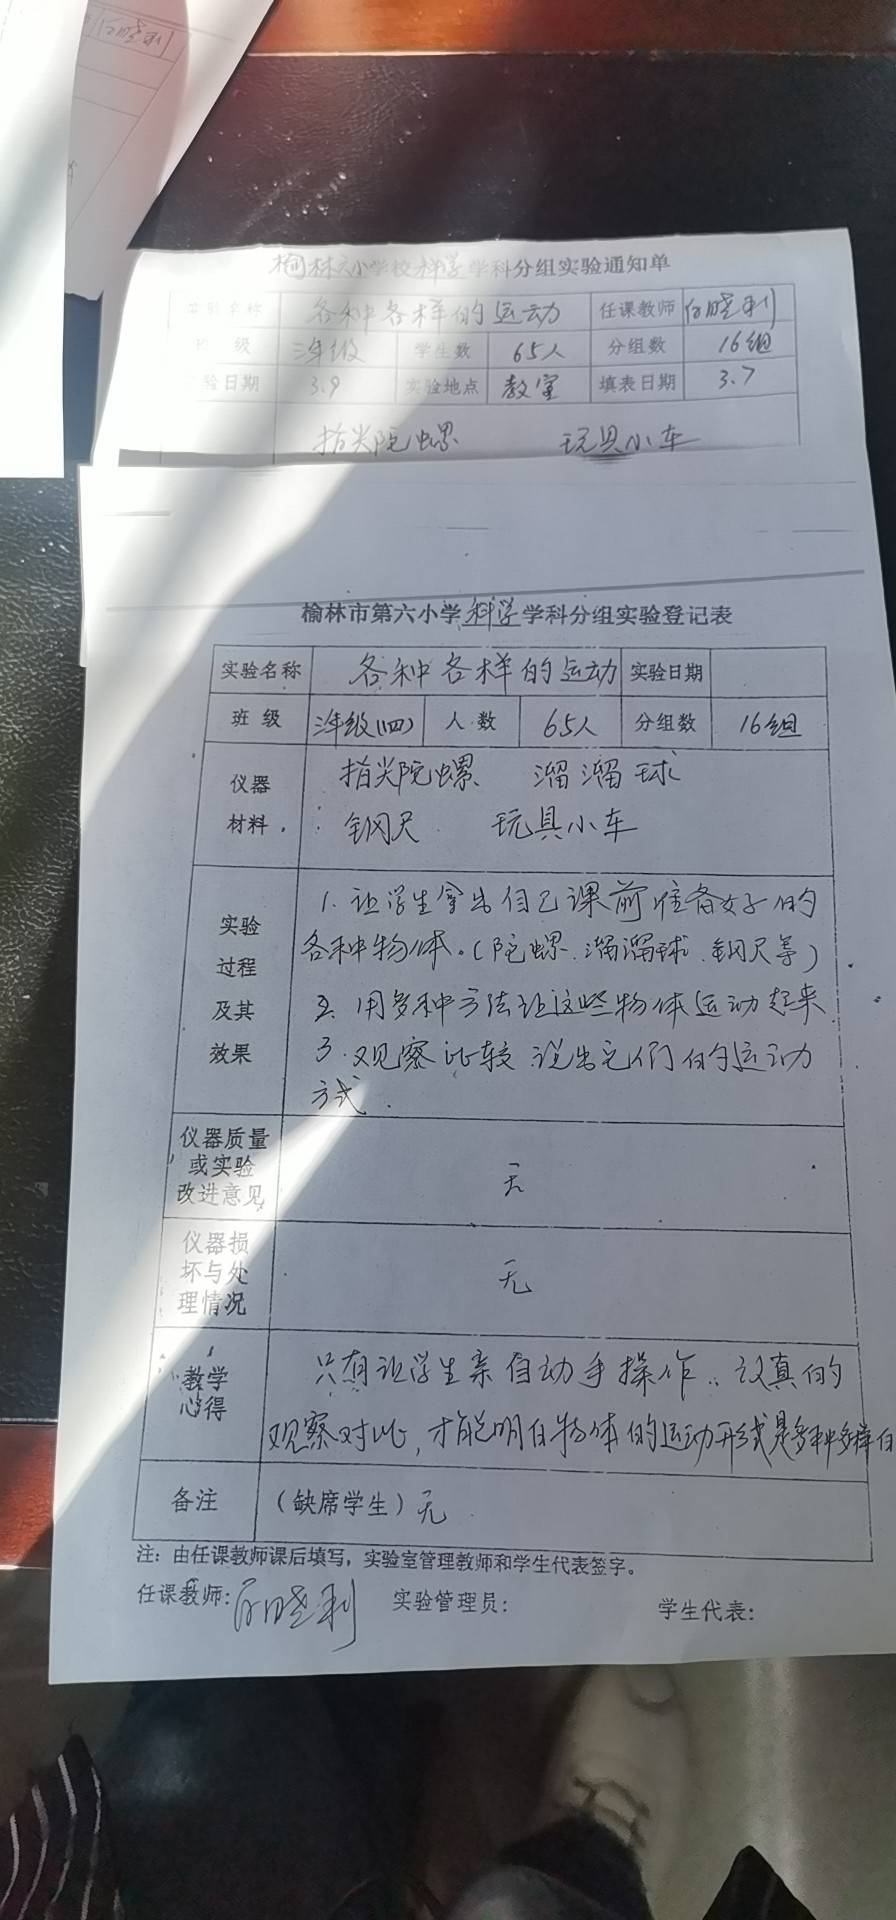 晓利
榆林六小学校科学学科分组实验通知单
实验名称 各种各样的运动 任课教师 晓利
级 三年级 学生数 65人 分组数 16组
验日期 3.9 实验地点 教室 填表日期 3.7
指尖陀螺 玩具小车
榆林市第六小学科学学科分组实验登记表
实验名称 各种各样的运动 实验日期
班 级 三年级(四) 人 数 65人 分组数 16组
仪器 指尖陀螺 溜溜球
材料 钢尺 玩具小车
实验 1. 让学生拿出自己课前准备好的
过程 各种物体。(陀螺.溜溜球.钢尺等)
及其 2. 用多种方法让这些物体运动起来
效果 3. 观察比较 说出它们的运动
方式.
仪器质量
或实验 无
改进意见
仪器损
坏与处 无
理情况
教学 只有让学生亲自动手操作,认真的
心得 观察对比,才能明白物体的运动形式是多种多样的
备注 (缺席学生)无
注：由任课教师课后填写，实验室管理教师和学生代表签字。
任课教师: 晓利 实验管理员: 学生代表: